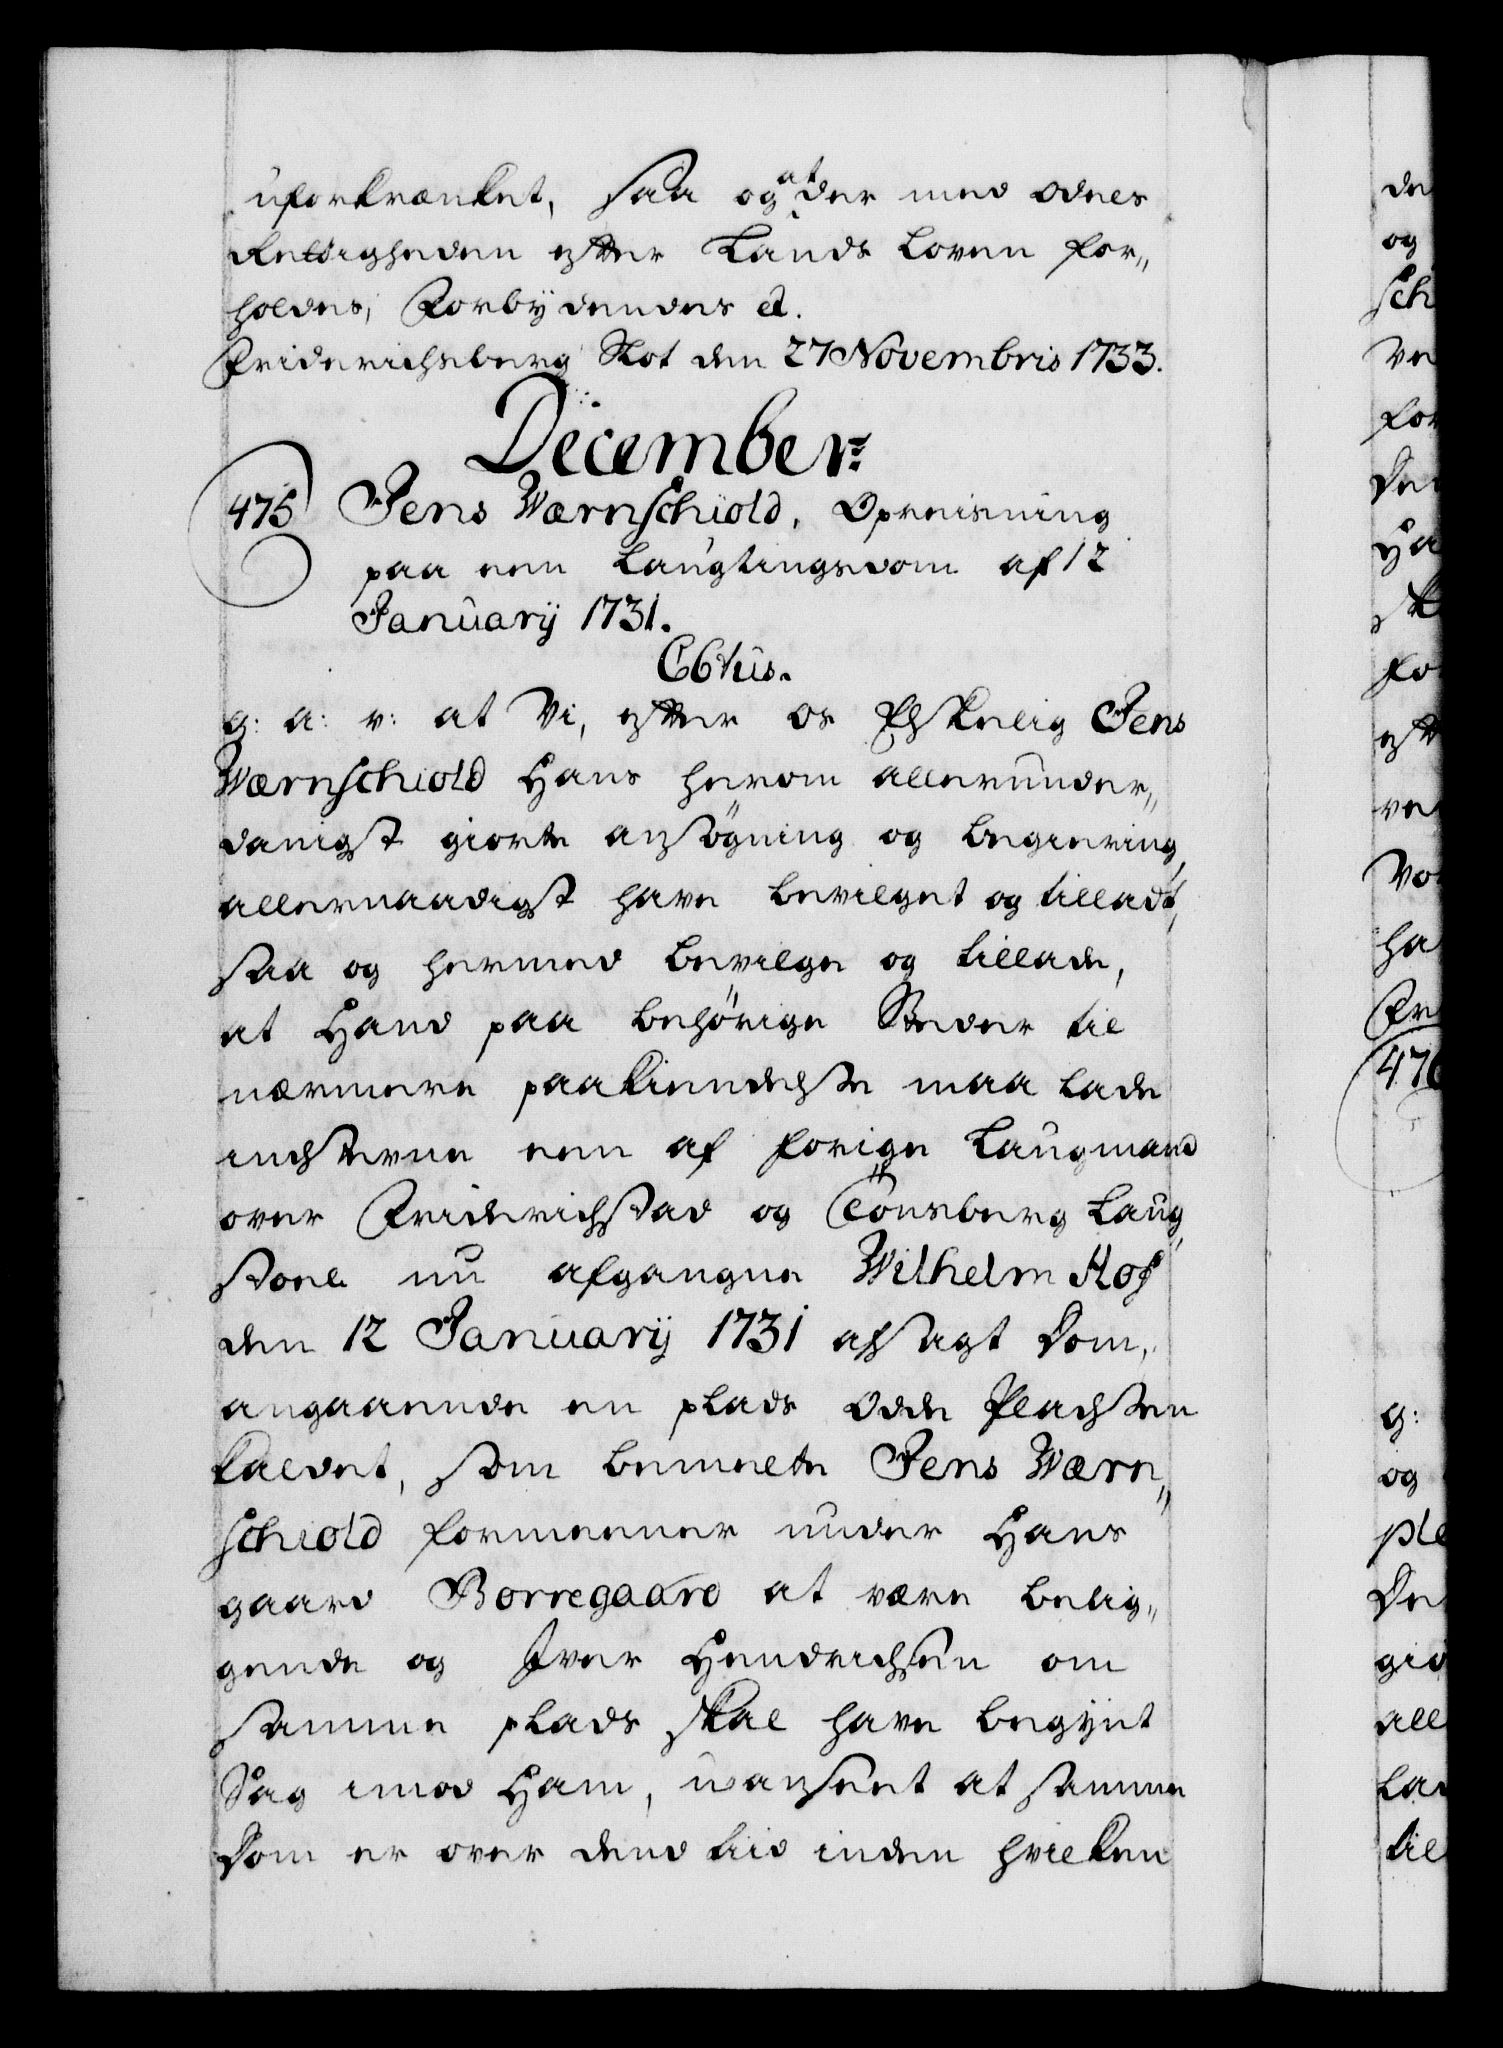 uforkrænket, saa og at der med Odels
Rettigheden efter Lands Loven for„
holdes, Forbÿdendes &.
Friderichsberg Slot den 27 Novembris 1733.
December:
475 Jens Wærnschiold, Opreisning
paa een Laugtingsdom af 12
Januarÿ 1731.
C6tus.
g: a: v: at Vi, efter os Elskelig Jens
Wærnschiold Hans herom allerunder„
danigst giorte ansögning og begiering,
allernaadigst have bevilget og tilladt,
saa og hermed bevilge og tillade,
at Hand paa behörige Steder til
nærmere paakiendelse maa lade
indstevne een af forige Laugmand
over Friderichstad og Tönsberg Laug„
stoel nu afgangne Wilhelm Hof
den 12 Januarÿ 1731 afsagt Dom,
angaaende en plads Odde Pladsen
kaldet, som bemelte Jens Wærn„
schiold formeener under Hans
gaard Borregaard at være belig„
gende og Iver Hendrichsen om
samme plads skal have begÿnt
Sag imod Ham, uanseet at samme
Dom er over dend tiid inden hvilken
de
og
sch
ve
for
Den
Ha
sk
fo
eft
ve
Vo
ha
Fri
476
g:
og
ple
De
gio
all
la
til